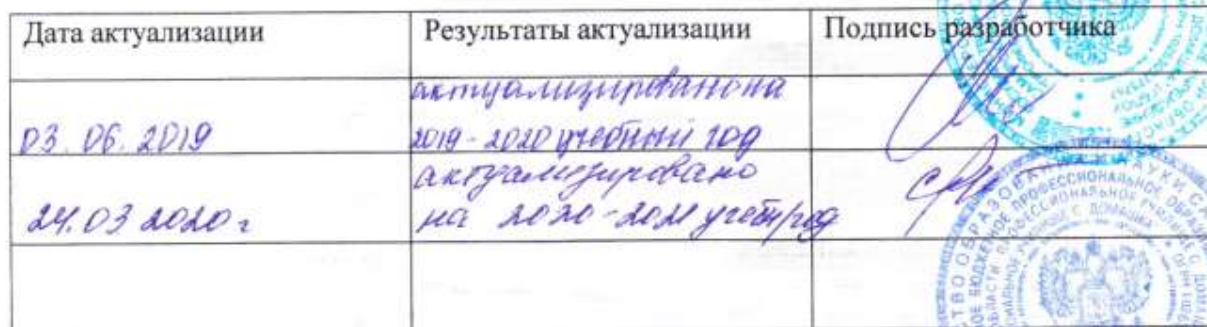 Дата актуализации
Результаты актуализации
Подпись разработчика
03.06.2019
актуализировано на
2019-2020 учебный год
24.03 2020 г
актуализировано
на 2020-2021 учебн/год
ОБРАЗОВАНИЯ И НАУКИ
ПРОФЕССИОНАЛЬНОЕ